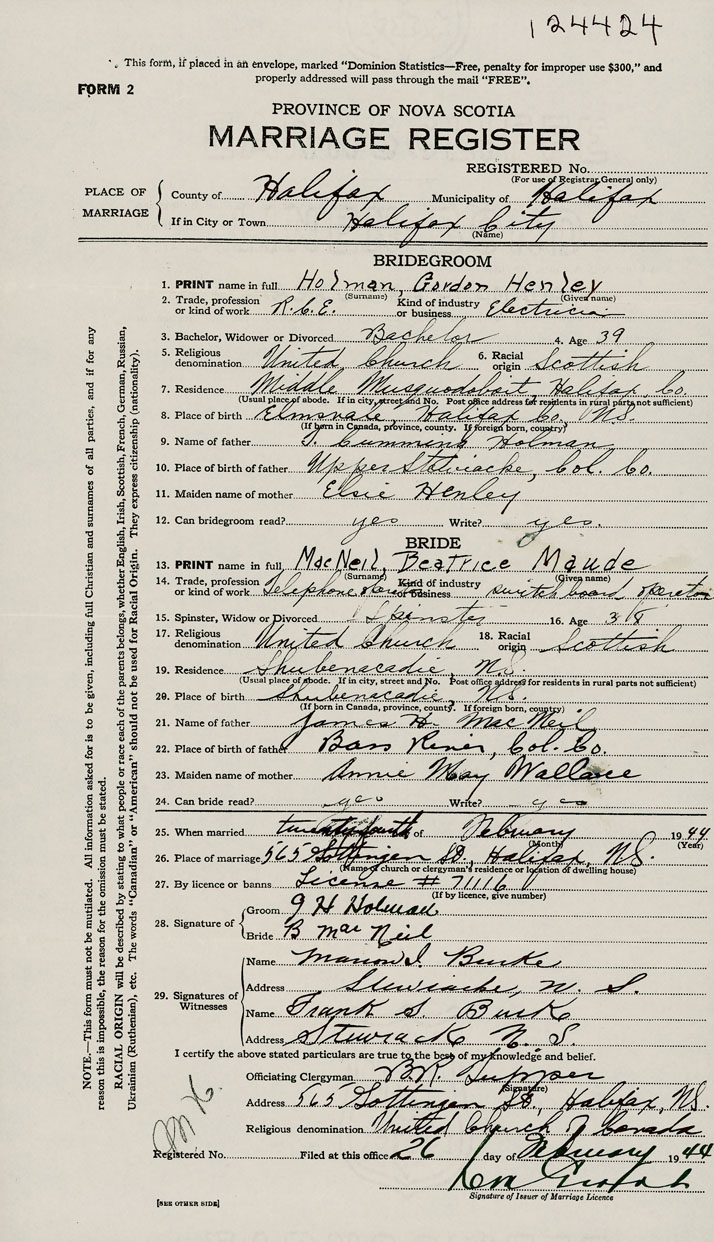 124424
This form, if placed in an envelope, marked “Dominion Statistics—Free, penalty for improper use $300,” and
properly addressed will pass through the mail “FREE”.
FORM 2
PROVINCE OF NOVA SCOTIA
MARRIAGE REGISTER
REGISTERED No.
(For use of Registrar General only)
PLACE OF MARRIAGE
County of Halifax Municipality of Halifax
If in City or Town Halifax City
(Name)
BRIDEGROOM
1. PRINT name in full Holman, Gordon Henley
(Surname) (Given name)
2. Trade, profession or kind of work R.C.E. Kind of industry or business Electrician
3. Bachelor, Widower or Divorced Bachelor 4. Age 39
5. Religious denomination United Church 6. Racial origin Scottish
7. Residence Middle Musquodoboit, Halifax Co.
(Usual place of abode. If in city, street and No. Post office address for residents in rural parts not sufficient)
8. Place of birth Elmsvale, Halifax Co. N.S.
(If born in Canada, province, county. If foreign born, country)
9. Name of father Cumming Holman
10. Place of birth of father Upper Stewiacke, Col. Co.
11. Maiden name of mother Elsie Henley
12. Can bridegroom read? yes Write? yes.
BRIDE
13. PRINT name in full MacNeil, Beatrice Maude
(Surname) (Given name)
14. Trade, profession or kind of work Telephone Kind of industry or business switch board operator
15. Spinster, Widow or Divorced Spinster 16. Age 38
17. Religious denomination United Church 18. Racial origin Scottish
19. Residence Shubenacadie, N.S.
(Usual place of abode. If in city, street and No. Post office address for residents in rural parts not sufficient)
20. Place of birth Shubenacadie, N.S.
(If born in Canada, province, county. If foreign born, country)
21. Name of father James H. MacNeil
22. Place of birth of father Bass River, Col. Co.
23. Maiden name of mother Annie May Wallace
24. Can bride read? yes Write? yes
25. When married twenty fourth of February 1944
(Month) (Year)
26. Place of marriage 565 Gottingen St., Halifax, N.S.
(Name of church or clergyman's residence or location of dwelling house)
27. By licence or banns License # 71116
(If by licence, give number)
28. Signature of
Groom G H Holman
Bride B MacNeil
29. Signatures of Witnesses
Name Marion I. Burke
Address Stewiacke, N. S.
Name Frank S. Burke
Address Stewiacke N. S.
I certify the above stated particulars are true to the best of my knowledge and belief.
Officiating Clergyman B.R. Tupper
(Signature)
Address 565 Gottingen St., Halifax, N.S.
Religious denomination United Church of Canada
Registered No. Filed at this office 26 day of February 1944
Signature of Issuer of Marriage Licence
[SEE OTHER SIDE]
NOTE.—This form must not be mutilated. All information asked for is to be given, including full Christian and surnames of all parties, and if for any
reason this is impossible, the reason for the omission must be stated.
RACIAL ORIGIN will be described by stating to what people or race each of the parents belongs, whether English, Irish, Scottish, French, German, Russian,
Ukrainian (Ruthenian), etc. The words “Canadian” or “American” should not be used for Racial Origin. They express citizenship (nationality).